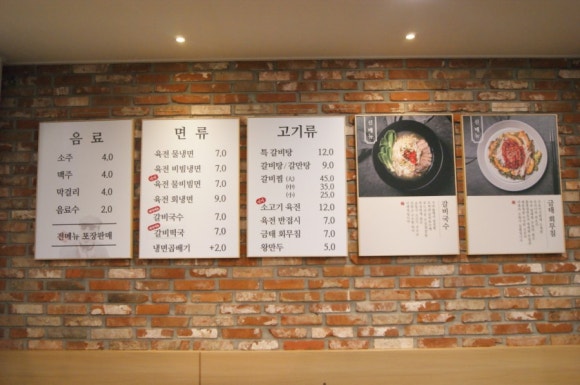 음 료
소주 4.0
맥주 4.0
막걸리 4.0
음료수 2.0
전메뉴 포장판매
면 류
육전 물냉면 7.0
육전 비빔냉면 7.0
육전 물비빔면 7.0
육전 회냉면 9.0
갈비국수 7.0
갈비떡국 7.0
냉면곱배기 +2.0
고기류
특 갈비탕 12.0
갈비탕/갈만탕 9.0
갈비찜 (大) 45.0
(中) 35.0
(小) 25.0
소고기 육전 12.0
육전 반접시 7.0
금태 회무침 7.0
왕만두 5.0
갈비국수
금태 회무침